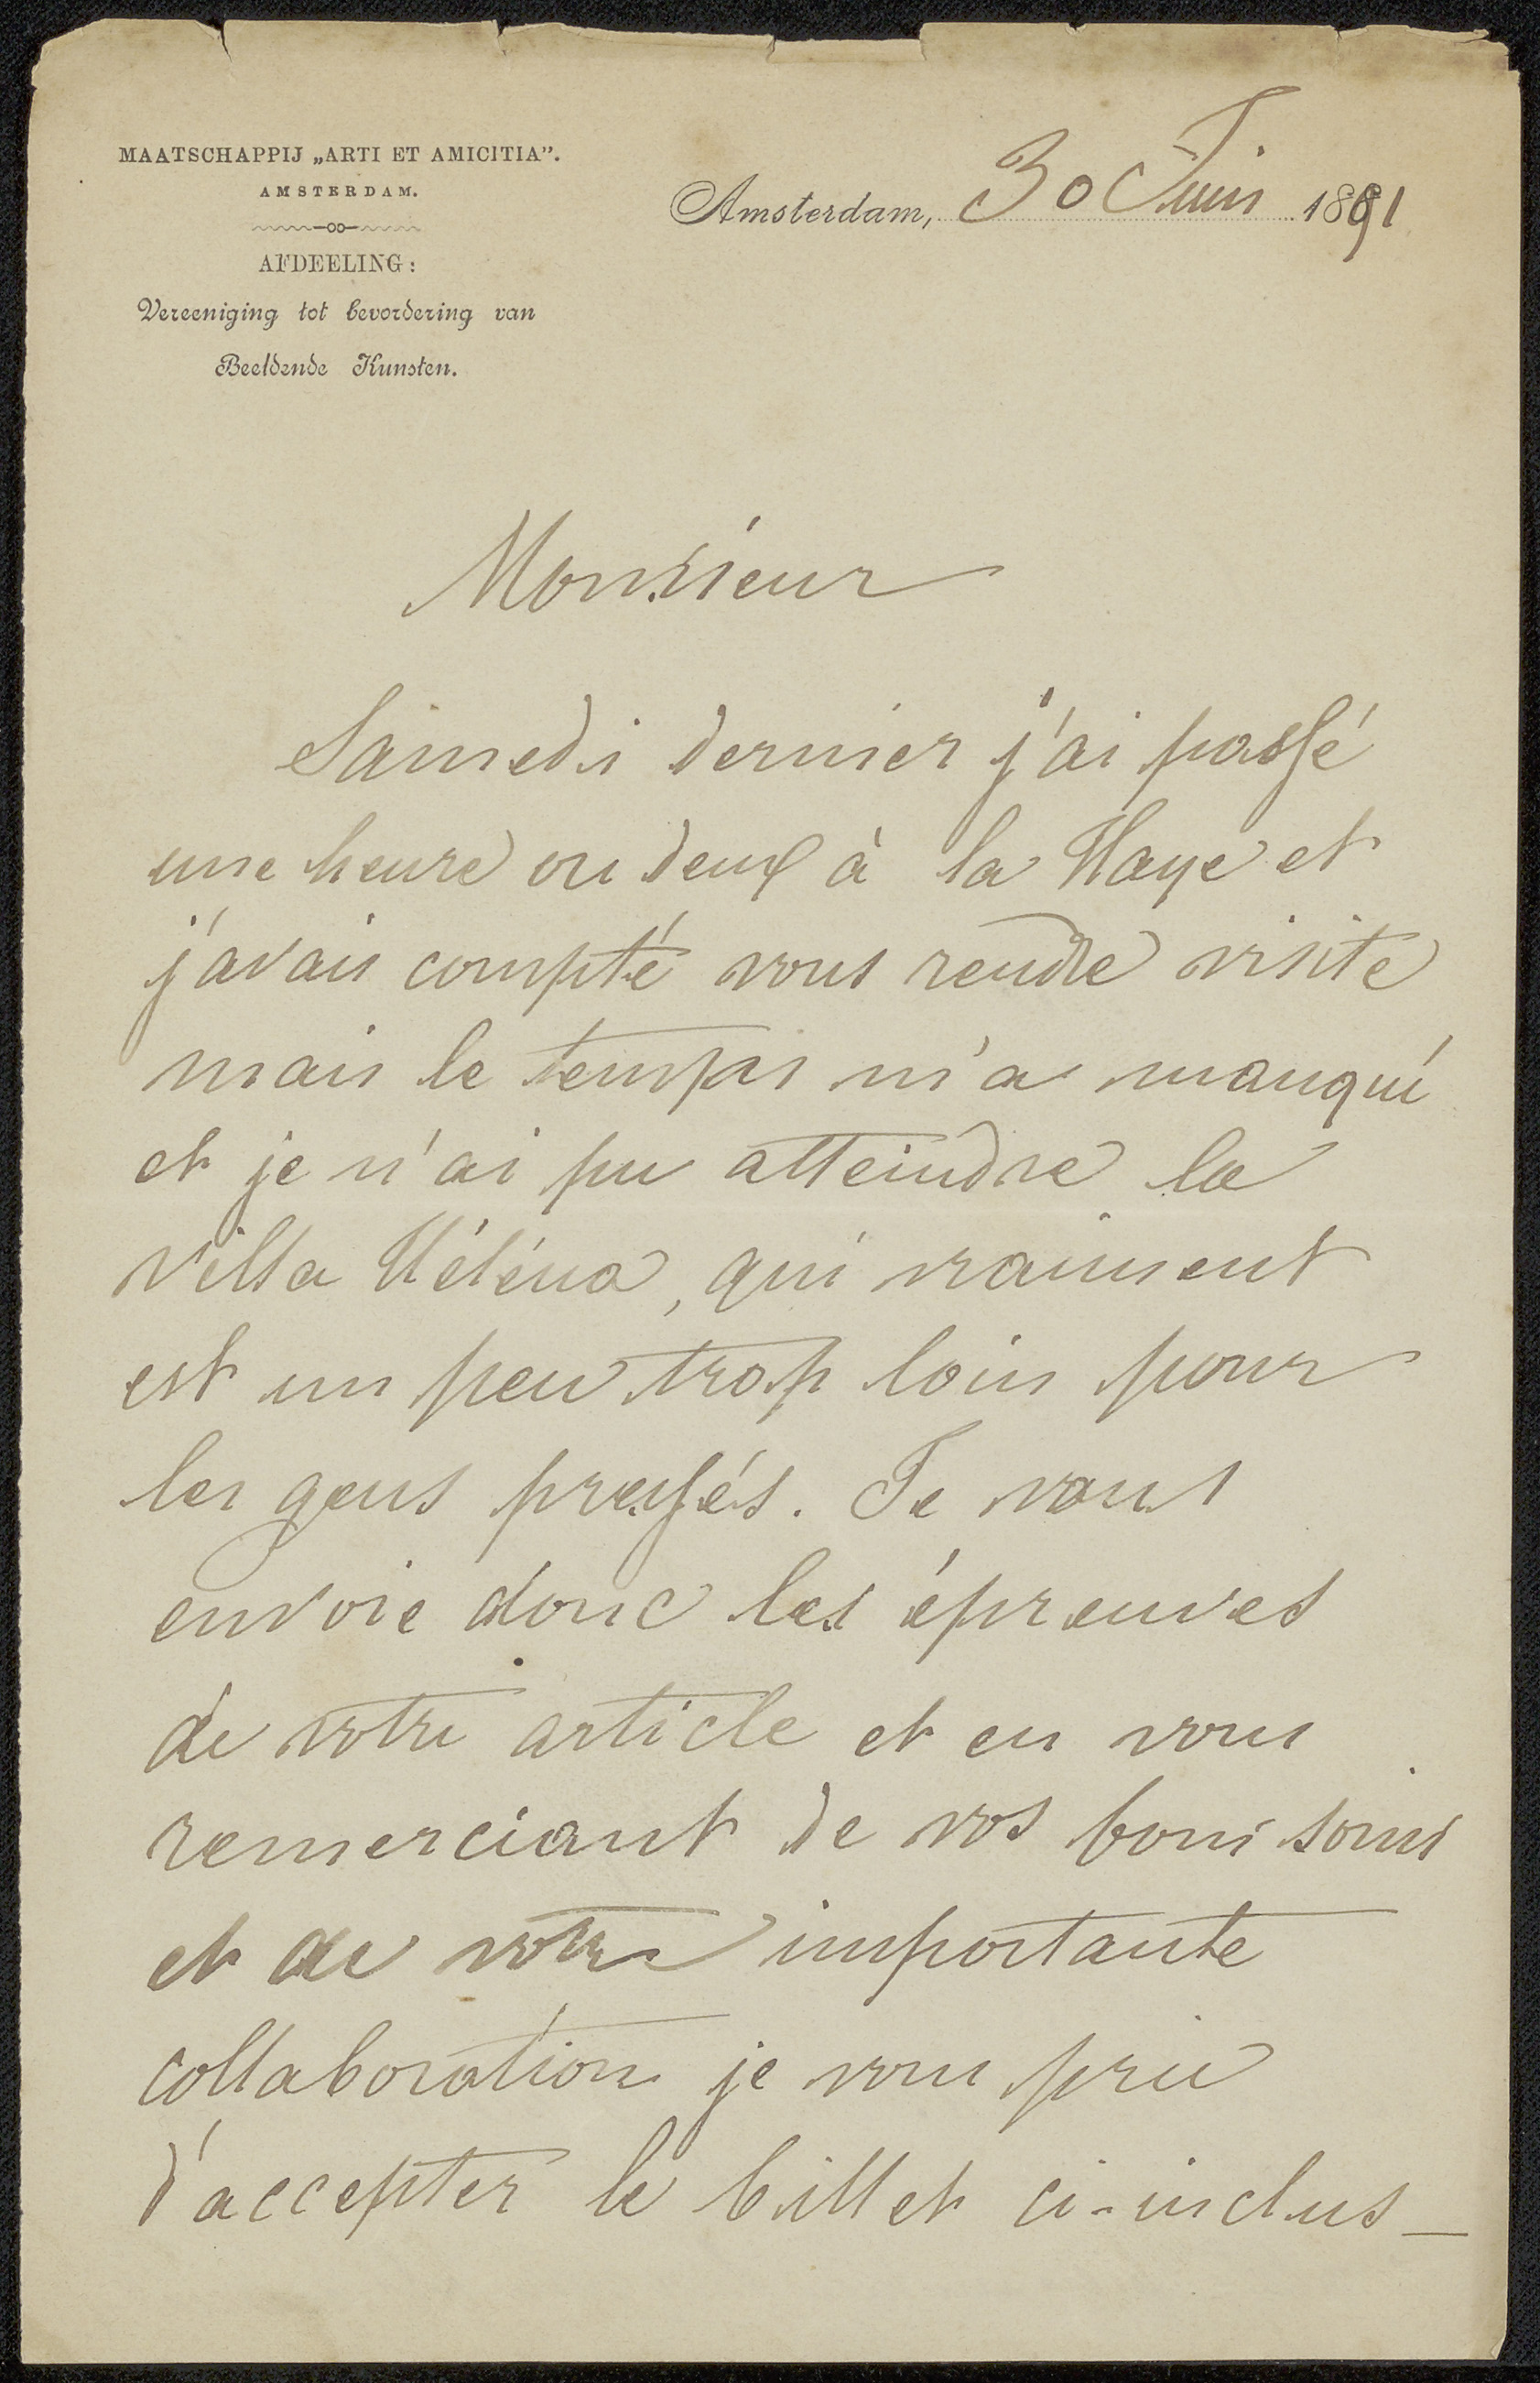 MAATSCHAPPIJ „ARTI ET AMICITIA”.
AMSTERDAM.
AFDEELING:
Vereeniging tot bevordering van
Beeldende Kunsten.
Amsterdam, 30 Juin 1891
Monsieur
Samedi dernier j'ai passé
une heure ou deux à la Haye et
j'avais compté vous rendre visite
mais le temps m'a manqué
et je n'ai pu atteindre la
villa Héléna, qui vraiment
est un peu trop loin pour
les gens pressés. Je vous
envoie donc les épreuves
de votre article et en vous
remerciant de vos bons soins
et de votre importante
collaboration je vous prie
d'accepter le billet ci-inclus_